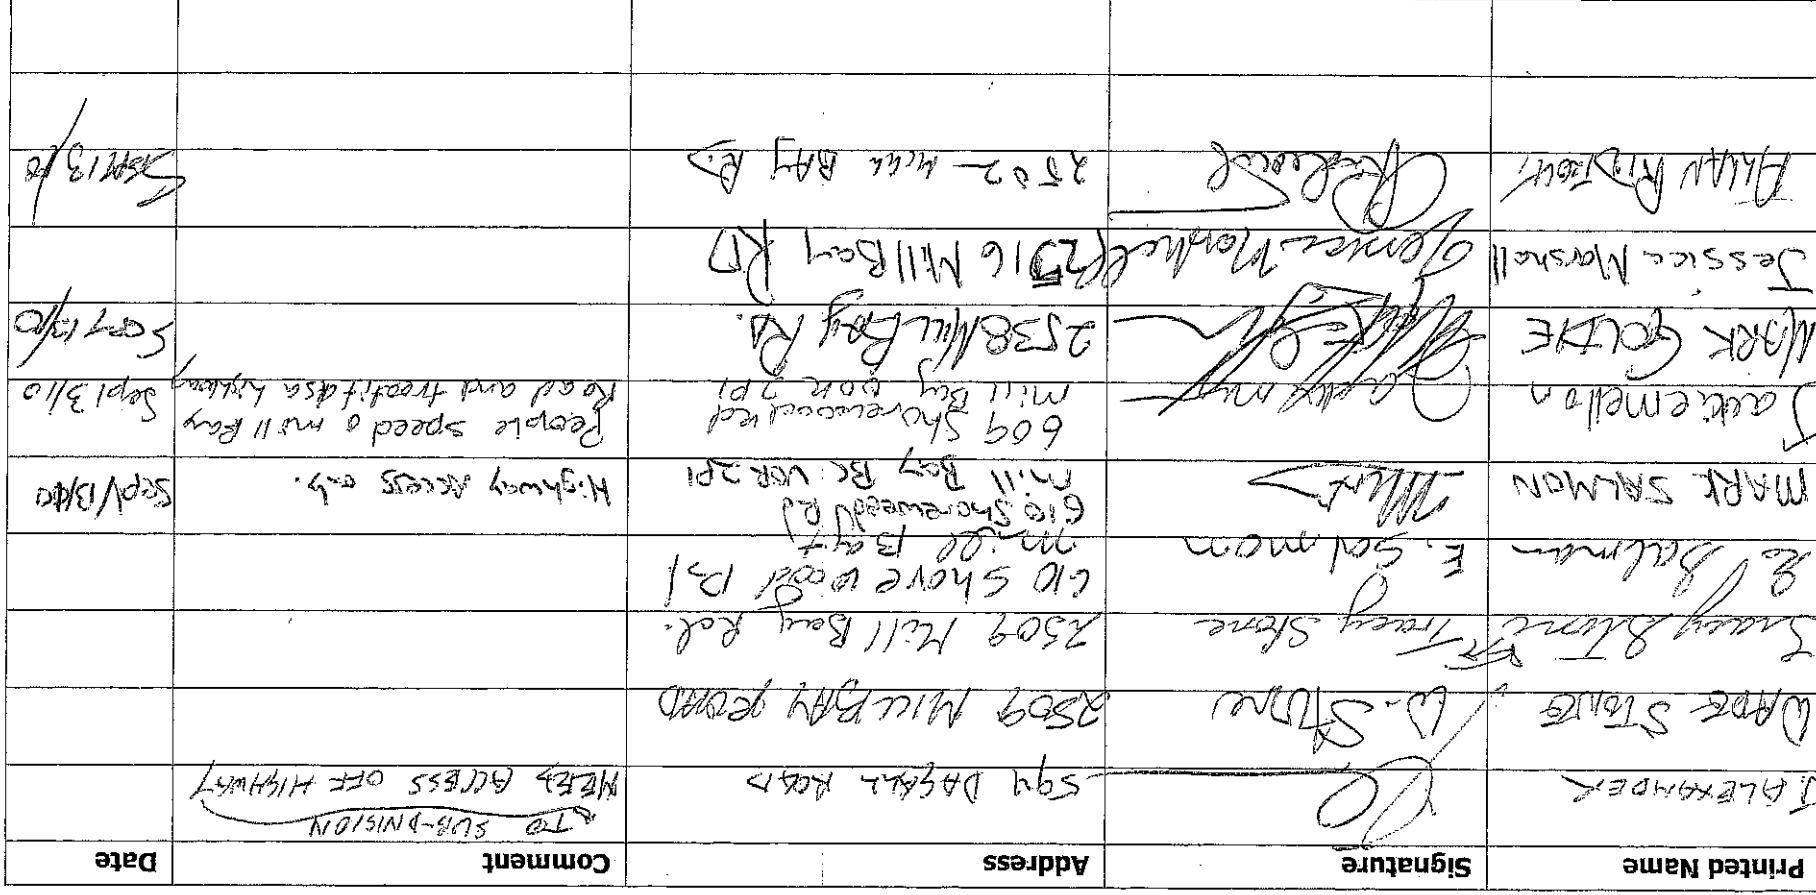 Printed Name Signature Address Comment Date
J. ALEXANDER 594 DAGALL ROAD NEED ACCESS OFF HIGHWAY
TO SUB-DIVISION
WADE STONE W. Stone 2509 MILL BAY ROAD
Tracy Stone Tracy Stone 2509 Mill Bay Rd.
Salmon E. Salmon 610 Shorewood Rd
Mill Bay
MARK SALMON 610 Shorewood Rd
Mill Bay BC V0R 2P1 Highway Access only. Sept/13/10
Jackie mellon 609 Shorewood Rd
Mill Bay V0R 2P1 People speed on mill Bay
Road and treat it as a highway Sept 13/10
MARK GOLDIE 2538 MILL BAY RD. SEPT 13/10
Jessica Marshall Jessica Marshall 2516 Mill Bay RD
ALLAN 2502 - MILL BAY RD Sept 13/10